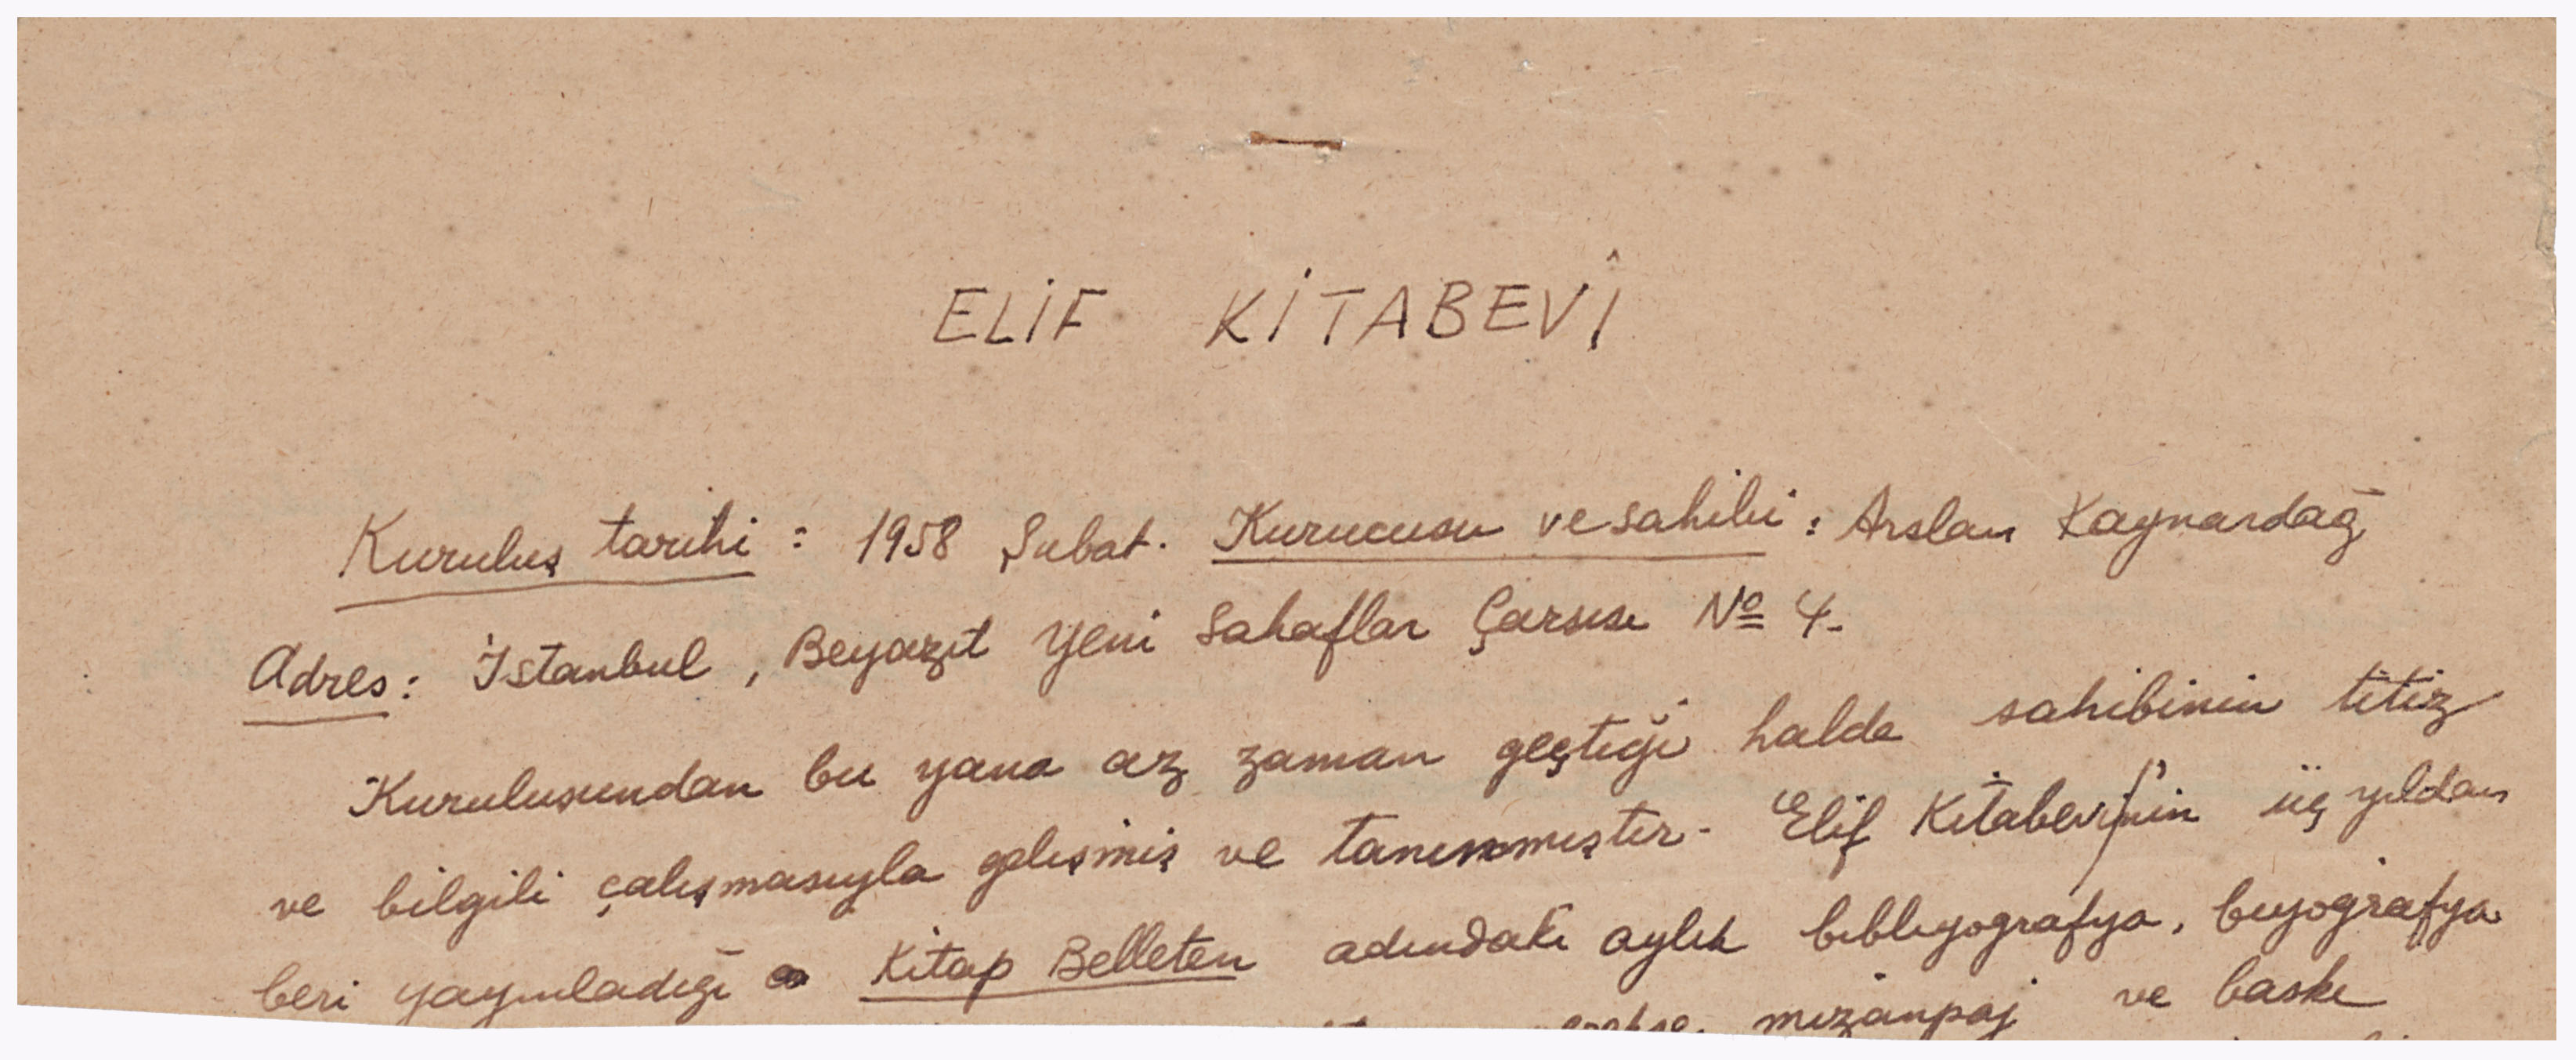 ELİF KİTABEVİ
Kuruluş tarihi : 1958 Şubat. Kurucusu ve sahibi : Arslan Kaynardağ
Adres : İstanbul , Beyazıt Yeni Sahaflar Çarşısı Nº 4.
Kuruluşundan bu yana az zaman geçtiği halde sahibinin titiz
ve bilgili çalışmasıyla gelişmiş ve tanınmıştır. Elif Kitabevi'nin üç yıldan
beri yayınladığı Kitap Belleten adındaki aylık bibliyografya, biyografya
mizanpaj ve baskı